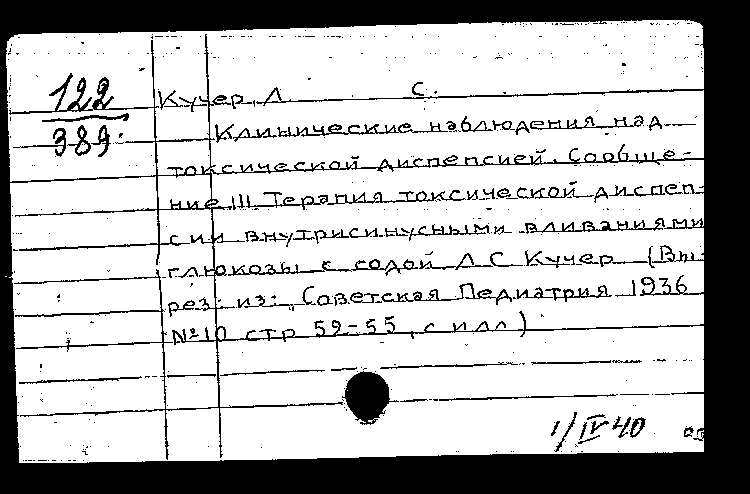 122
389.
Кучер, Л. С.
Клинические наблюдения над
токсической диспепсией. Сообще-
ние III Терапия токсической диспеп-
сии внутрисинусными вливаниями
глюкозы с содой Л С Кучер (Вы-
рез: из: „Советская Педиатрия 1936
№10 стр 59-55, с илл)
1/IV 40